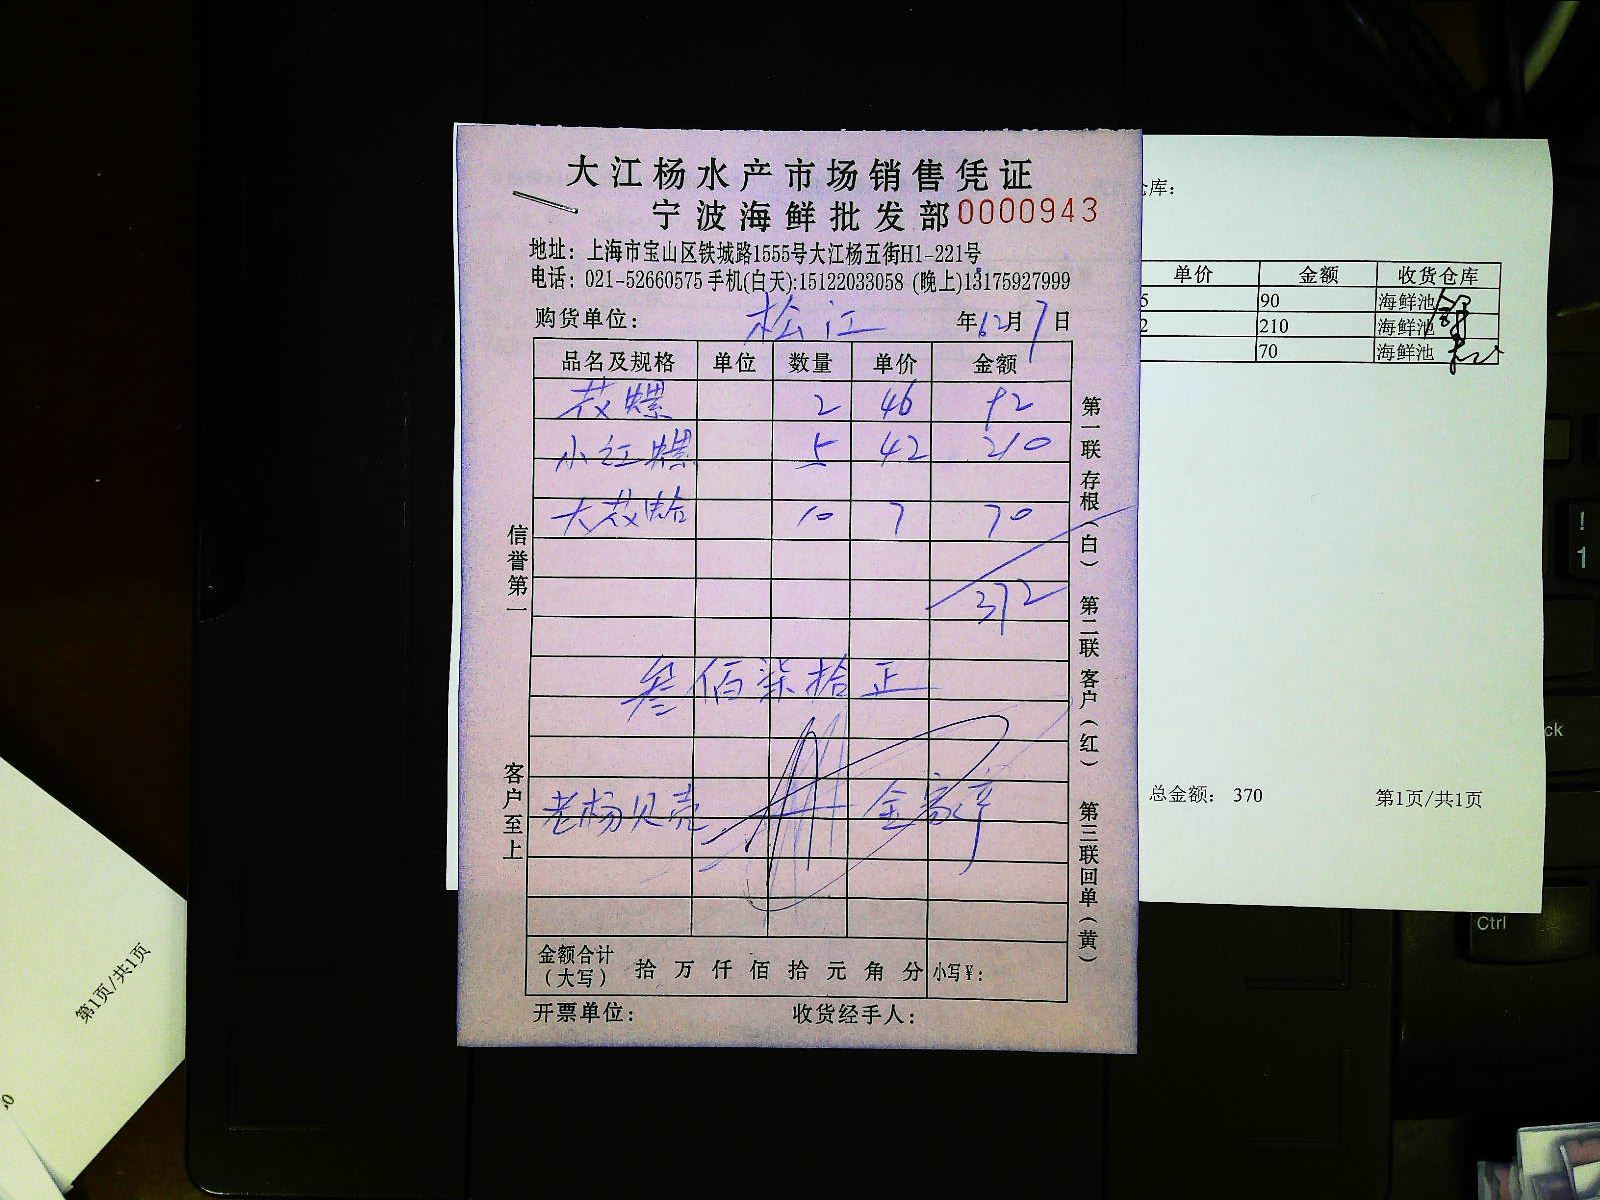 大江杨水产市场销售凭证
宁波海鲜批发部 0000943
地址：上海市宝山区铁城路1555号大江杨五街H1-221号
电话：021-52660575 手机(白天):15122033058 (晚上)13175927999
购货单位：松江 年12月7日
品名及规格 单位 数量 单价 金额
花螺 2 46 92
小红螺 5 42 210
大花蛤 10 7 70
372
叁佰柒拾正
老杨贝壳
金额合计（大写） 拾万仟佰拾元角分 小写¥：
开票单位： 收货经手人：
信誉第一
客户至上
第一联存根（白） 第二联客户（红） 第三联回单（黄）
仓库：
单价 金额 收货仓库
5 90 海鲜池
2 210 海鲜池
70 海鲜池
总金额： 370 第1页/共1页
第1页/共1页
!
1
ck
Ctrl